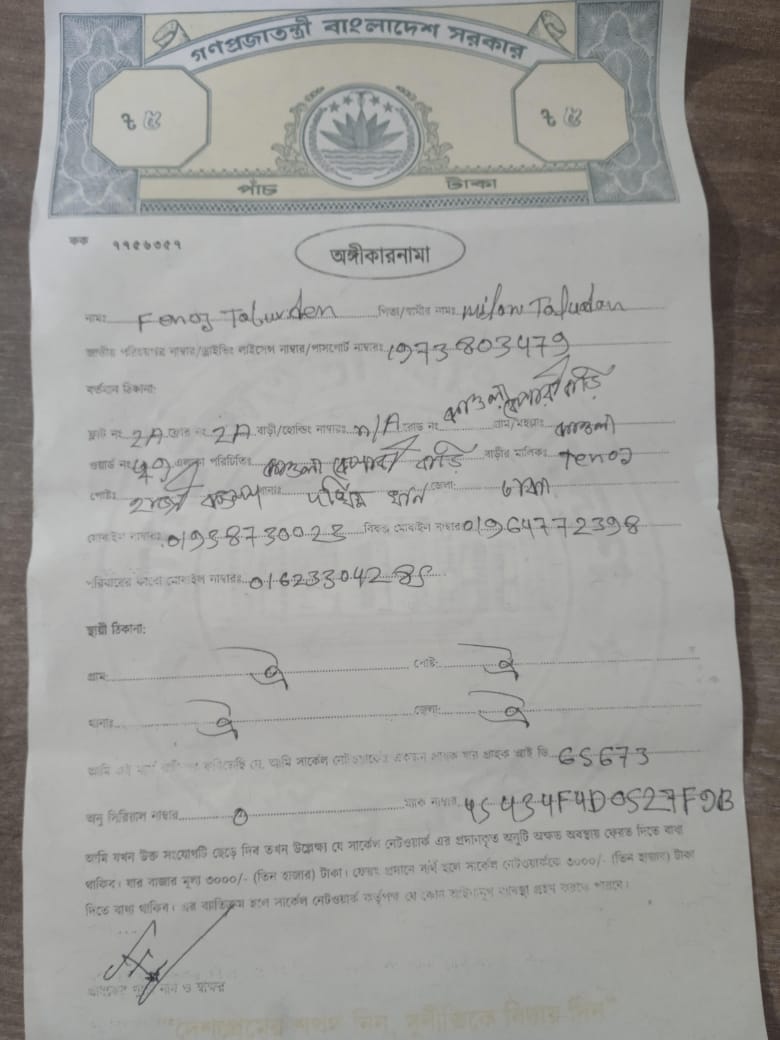 গণপ্রজাতন্ত্রী বাংলাদেশ সরকার
৳ ৫ ৳ ৫
পাঁচ টাকা
কক ৭৭৫৬৩৫৭
অঙ্গীকারনামা
নামঃ Feroj Talukder পিতা/স্বামীর নামঃ Milon Talukdar
জাতীয় পরিচয়পত্র নাম্বার/ড্রাইভিং লাইসেন্স নাম্বার/পাসপোর্ট নাম্বারঃ 1973803479
বর্তমান ঠিকানা:
ফ্ল্যাট নং 2A ফ্লোর নং 2A বাড়ী/হোল্ডিং নাম্বারঃ N/A রোড নং কাওলা বেপারী বাড়ি গ্রাম/মহল্লাঃ কাওলা
ওয়ার্ড নং এলাকা পরিচিতিঃ কাওলা বেপারী বাড়ি বাড়ীর মালিকঃ Feroj
পোষ্টঃ হাজী ক্যাম্প থানাঃ দক্ষিন খান জেলা: ঢাকা
মোবাইল নাম্বারঃ 01958730023 বিকল্প মোবাইল নাম্বারঃ 01964772398
পরিবারের কারো মোবাইল নাম্বারঃ 01623304285
স্থায়ী ঠিকানা:
গ্রাম: ঐ পোষ্ট: ঐ
থানাঃ ঐ জেলা: ঐ
আমি এই মর্মে যে, আমি সার্কেল নেটওয়ার্কের একজন গ্রাহক যার গ্রাহক আই ডি 65673
অনু সিরিয়াল নাম্বার 0 ম্যাক নাম্বার 45434F4D0527F9DB
আমি যখন উক্ত সংযোগটি ছেড়ে দিব তখন উল্লেখ্য যে সার্কেল নেটওয়ার্ক এর প্রদানকৃত অনুটি অক্ষত অবস্থায় ফেরত দিতে বাধ্য
থাকিব। যার বাজার মূল্য ৩০০০/- (তিন হাজার) টাকা। ফেরৎ প্রদানে ব্যর্থ হলে সার্কেল নেটওয়ার্ককে ৩০০০/- (তিন হাজার) টাকা
দিতে বাধ্য থাকিব। এর ব্যতিক্রম হলে সার্কেল নেটওয়ার্ক কর্তৃপক্ষ যে কোন আইনানুগ ব্যবস্থা গ্রহন করতে পারবে।
গ্রাহকের পূর্ণ নাম ও স্বাক্ষর
"দেশপ্রেমের শপথ নিন, দুর্নীতিকে বিদায় দিন"